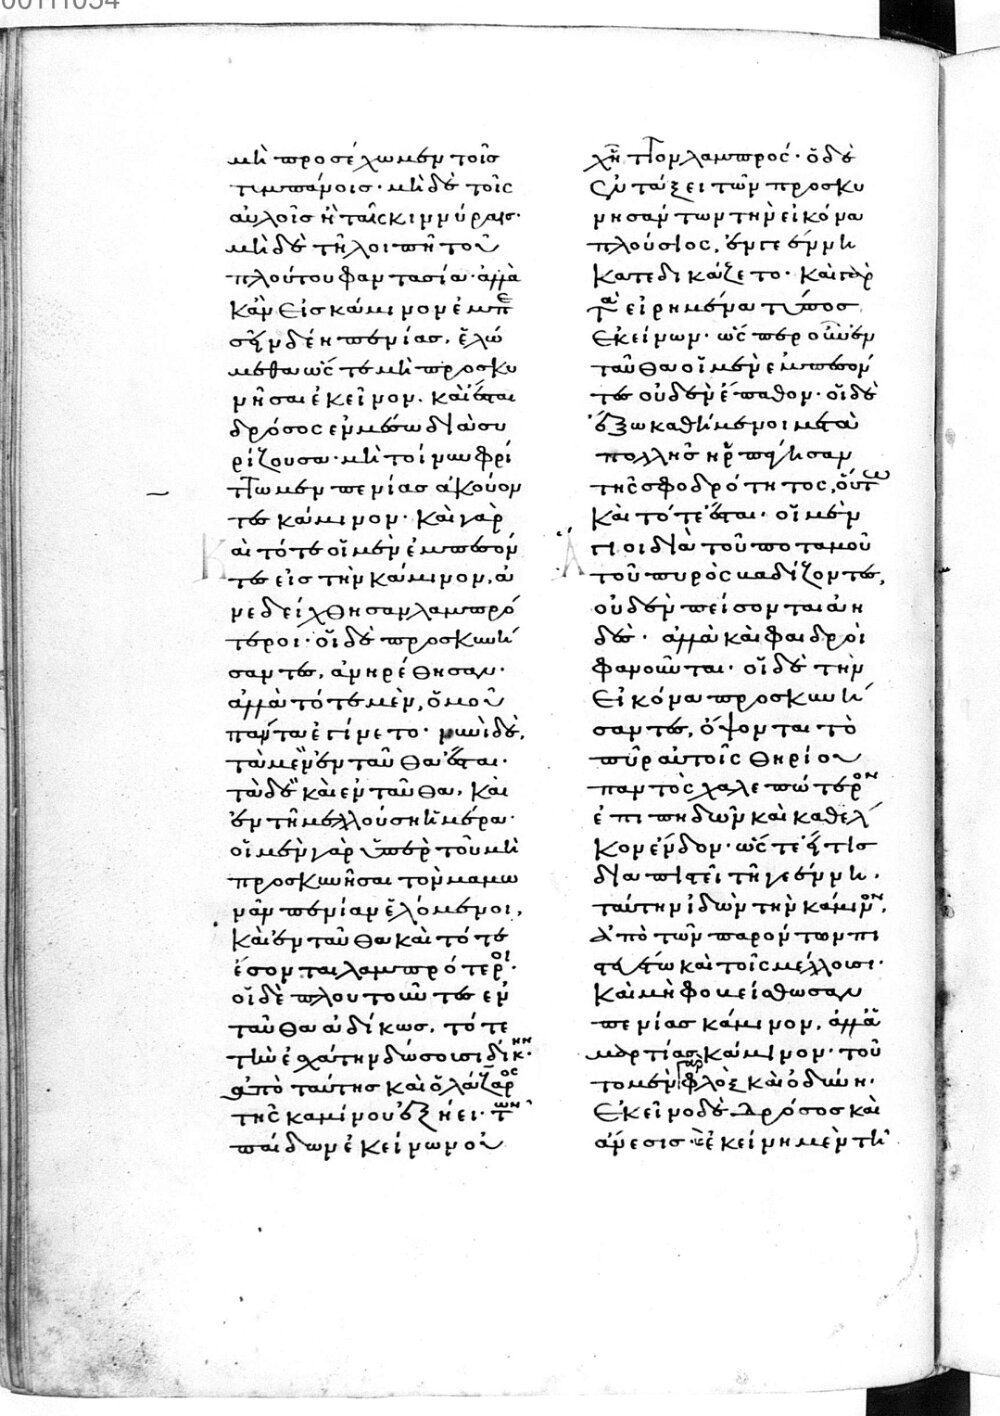 μὴ προσέχωμεν τοῖς
τυμπάνοις· μὴ δὲ τοῖς
αὐλοῖς ἢ ταῖς κινύραις·
μὴ δὲ τῆ λοιπῆ τοῦ
πλούτου φαντασία· ἀλλὰ
κἂν εἰς κάμινον ἐμπε
σεῖν δέη πενίας, ἑλώ
μεθα ὥστε μὴ προσκυ
νῆσαι ἐκεῖνον. καὶ ἔσται
δρόσος ἐν μέσω διασυ
ρίζουσα· μὴ τοίνυν φρί
ττωμεν πενίας ἀκούον
τες κάμινον· καὶ γὰρ
καὶ τότε οἱ μὲν ἐμπεσόν
τες εἰς τὴν κάμινον, ἀ
νεδείχθησαν λαμπρό
τεροι· οἱ δὲ προσκυνή
σαντες, ἀνηρέθησαν·
ἀλλὰ τότε μὲν, ὁμοῦ
πάντα ἐγίνετο· νυνὶ δὲ,
τὰ μὲν ἐνταῦθα ἔσται·
τὰ δὲ καὶ ἐνταῦθα, καὶ
ἐν τῆ μελλούση ἡμέρα·
οἱ μὲν γὰρ ὑπὲρ τοῦ μὴ
προσκυνῆσαι τὸν μαμω
νᾶν πενίαν ἑλόμενοι,
καὶ ἐνταῦθα καὶ τότε
ἔσονται λαμπρότεροι·
οἱ δὲ πλουτοῦντες ἐν
ταῦθα ἀδίκως, τότε
τὴν ἐσχάτην δώσουσι δίκην·
ἀπὸ ταύτης καὶ ὁ λάζαρος
τῆς καμίνου ἐξήει· τῶν
παίδων ἐκείνων οὐ
χ ἧττον λαμπρός· ὁ δὲ
ἐν τάξει τῶν προσκυ
νησάντων τὴν εἰκόνα
πλούσιος, ἐν γεέννη
κατεδικάζετο· καὶ γὰρ
τὰ εἰρημένα τύπος
ἐκείνων· ὥσπερ οὖν ἐν
ταῦθα οἱ μὲν ἐμπεσόν
τες οὐδὲν ἔπαθον· οἱ δὲ
ἔξω καθήμενοι μετὰ
πολλῆς ἡρπάγησαν
τῆς σφοδρότητος, οὕτω
καὶ τότε ἔσται· οἱ μὲν
ἅγιοι διὰ τοῦ ποταμοῦ
τοῦ πυρὸς βαδίζοντες,
οὐδὲν πείσονται ἀη
δὲς· ἀλλὰ καὶ φαιδροὶ
φανοῦνται· οἱ δὲ τὴν
εἰκόνα προσκυνή
σαντες, ὄψονται τὸ
πῦρ αὐτοῖς θηρίου
παντὸς χαλεπώτερον
ἐπιπηδῶν καὶ καθέλ
κον ἔνδον· ὥστε εἴ τις
διαπιστεῖ τῆ γεέννη,
ταύτην ἰδὼν τὴν κάμινον,
ἀπὸ τῶν παρόντων πι
στευέτω καὶ τοῖς μέλλουσι·
καὶ μὴ φοβείσθω
πενίας κάμινον, ἀλλὰ
ἁμαρτίας κάμινον· τοῦ
το μὲν γὰρ φλὸξ καὶ ὀδύνη·
ἐκεῖνο δὲ δρόσος καὶ
ἄνεσις· ἐκείνη μὲν τῆ